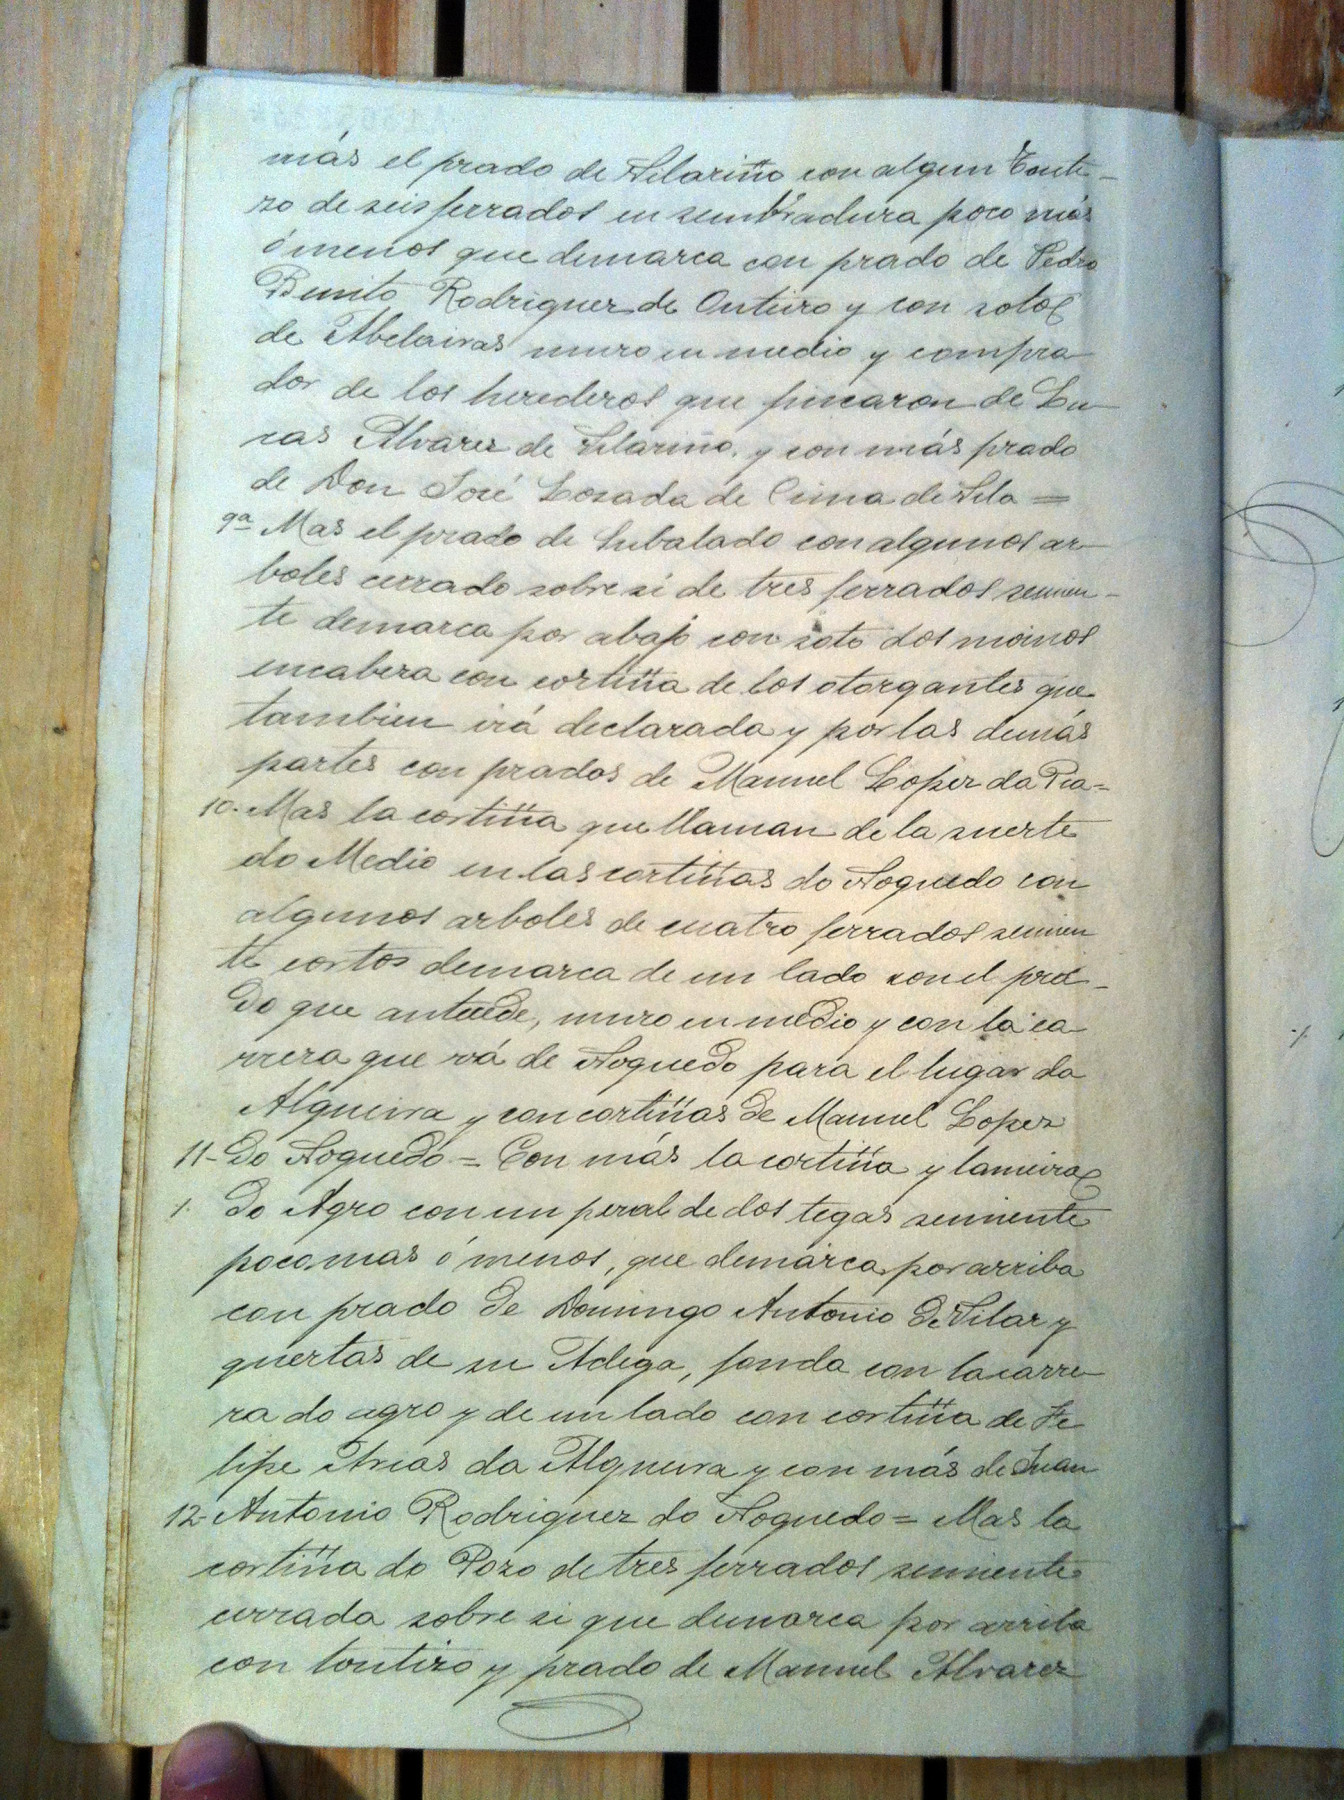 más el prado de Vilariño con algun Touti-
zo de seis ferrados en sembradura poco más
ó menos que demarca con prado de Pedro
Benito Rodriguez de Outeiro y con sotos
de Abelairas muro en medio y compra
dor de los herederos que fincaron de Lu-
cas Alvarez de Vilariño, y con más prado
de Don José Losada de Cima de Vila =
9ª Mas el prado de Subalado con algunos ar-
boles cerrado sobre si de tres ferrados semien-
te demarca por abajo con soto dos moinos
encabeza con cortiña de los otorgantes que
tambien irá declarada y por las demás
partes con prados de Manuel Lopez da Pia=
10. Mas la cortiña que llaman de la suerte
do Medio en las cortiñas do Noguedo con
algunos arboles de cuatro ferrados semien
te cortos demarca de un lado con el pra-
do que antecede, muro en medio y con la ca
rrera que vá de Noguedo para el lugar da
Algueira y con cortiñas de Manuel Lopez
11- do Noguedo = Con más la cortiña y lameiras
do Agro con un peral de dos tegas semiente
poco mas ó menos, que demarca por arriba
con prado de Domingo Antonio de Vilar y
guertas de su Adega, fonda con la carre-
ra do agro y de un lado con cortiña de Fe
lipe Arias da Algueira y con más de Juan
12- Antonio Rodriguez do Noguedo = Mas la
cortiña do Pozo de tres ferrados semiente
cerrada sobre si que demarca por arriba
con toutizo y prado de Manuel Alvarez